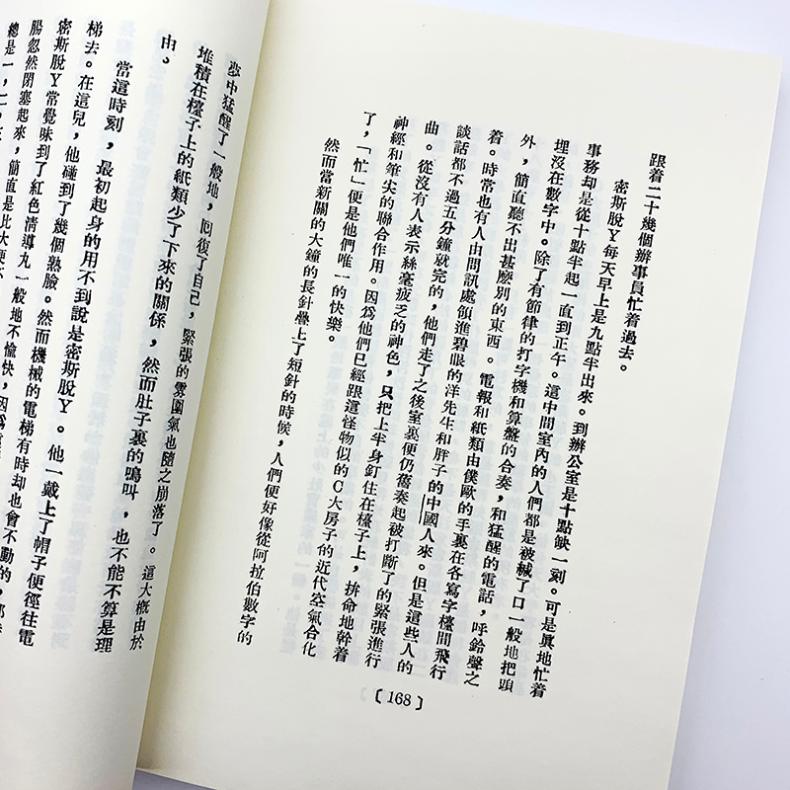 跟着二十幾個辦事員忙着過去。
密斯脫Y每天早上是九點半出來。到辦公室是十點缺一刻。可是眞地忙着
事務却是從十點半起一直到正午。這中間室內的人們都是被緘了口一般地把頭
埋沒在數字中。除了有節律的打字機和算盤的合奏，和猛醒的電話，呼鈴聲之
外，簡直聽不出甚麽別的東西。電報和紙類由僕歐的手裏在各寫字檯間飛行
着。時常也有人由問訊處領進碧眼的洋先生和胖子的中國人來。但是這些人的
談話都不過五分鐘就完的，他們走了之後室裏便仍舊奏起被打斷了的緊張進行
曲。從沒有人表示絲毫疲乏的神色，只把上半身釘住在檯子上，拚命地幹着
神經和筆尖的聯合作用。因爲他們已經跟這怪物似的C大房子的近代空氣合化
了，「忙」便是他們唯一的快樂。
然而當新關的大鐘的長針疊上了短針的時候，人們便好像從阿拉伯數字的
〔168〕
夢中猛醒了一般地，回復了自己，緊張的雰圍氣也隨之崩落了。這大槪由於
堆積在檯子上的紙類少了下來的關係，然而肚子裏的鳴叫，也不能不算是理
由。
當這時刻，最初起身的用不到說是密斯脫Y。他一戴上了帽子便徑往電
梯去。在這兒，他碰到了幾個熟臉。然而機械的電梯有時却也會不動的，
密斯脫Y常覺味到了紅色清導丸一般地不愉快，因爲
腸忽然閉塞起來，簡直是比大便不
總是一，二，